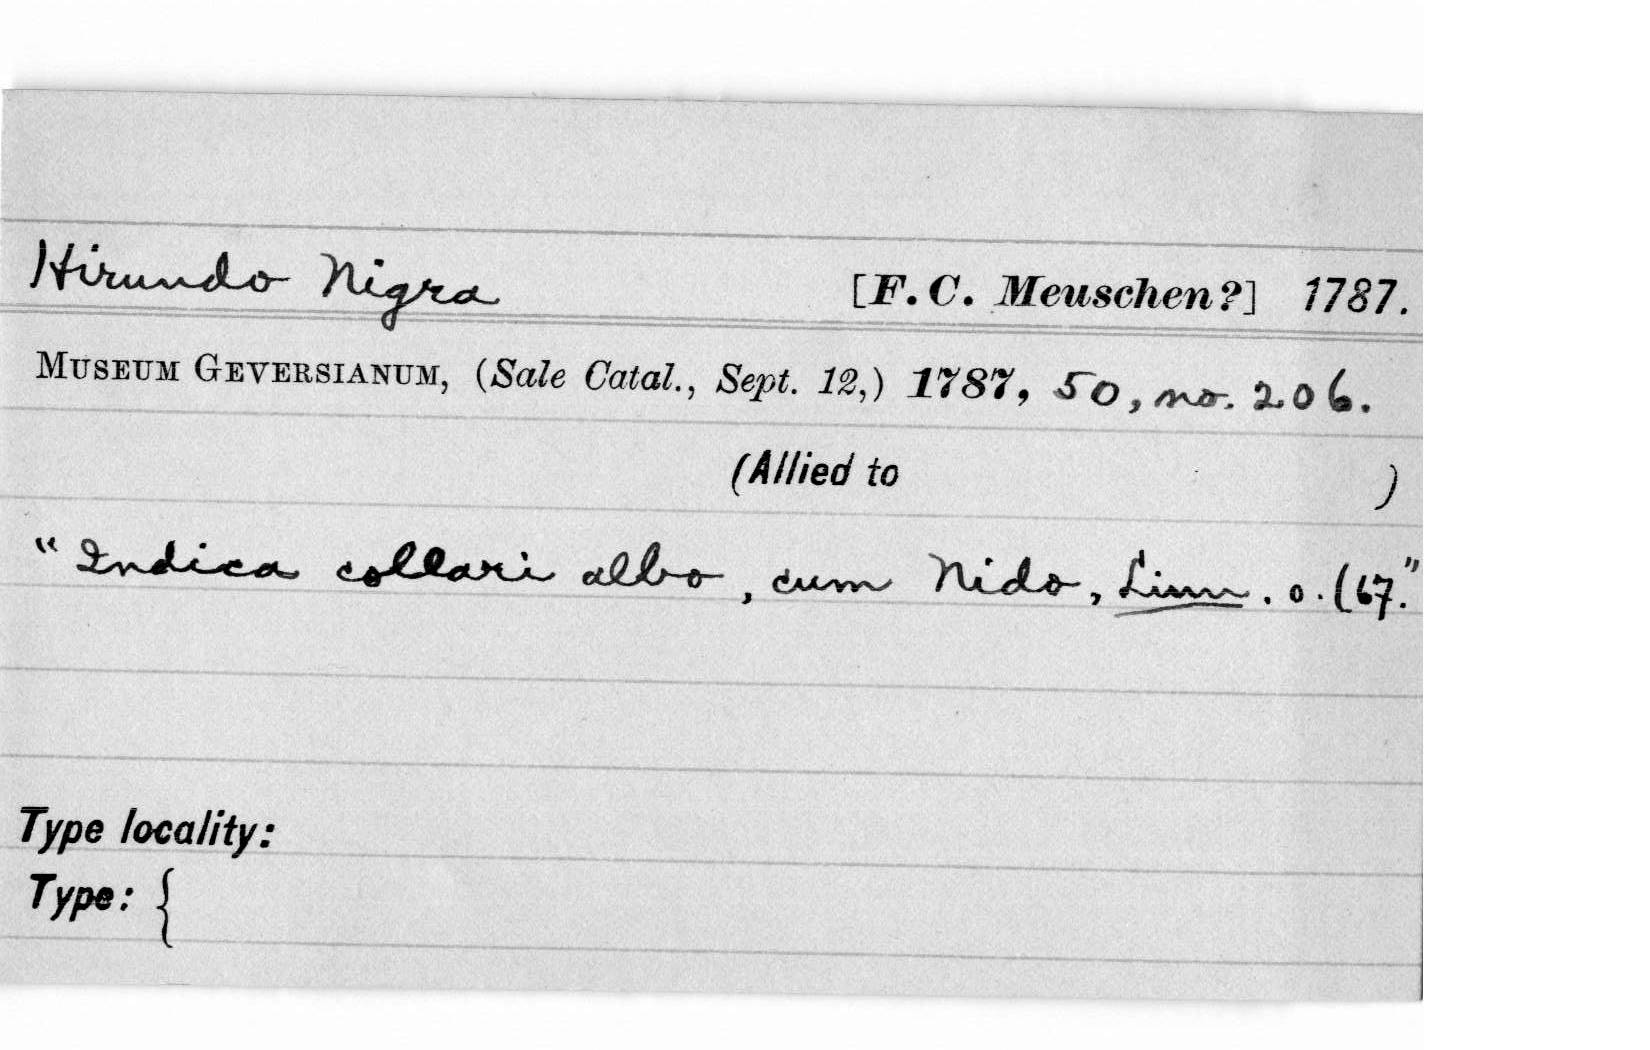 Hirundo Nigra [F. C. Meuschen?] 1787.
Museum Geversianum, (Sale Catal., Sept. 12,) 1787, 50, no. 206.
(Allied to )
"Indica collari albo, cum Nido, Linn. o. (67."
Type locality:
Type: {